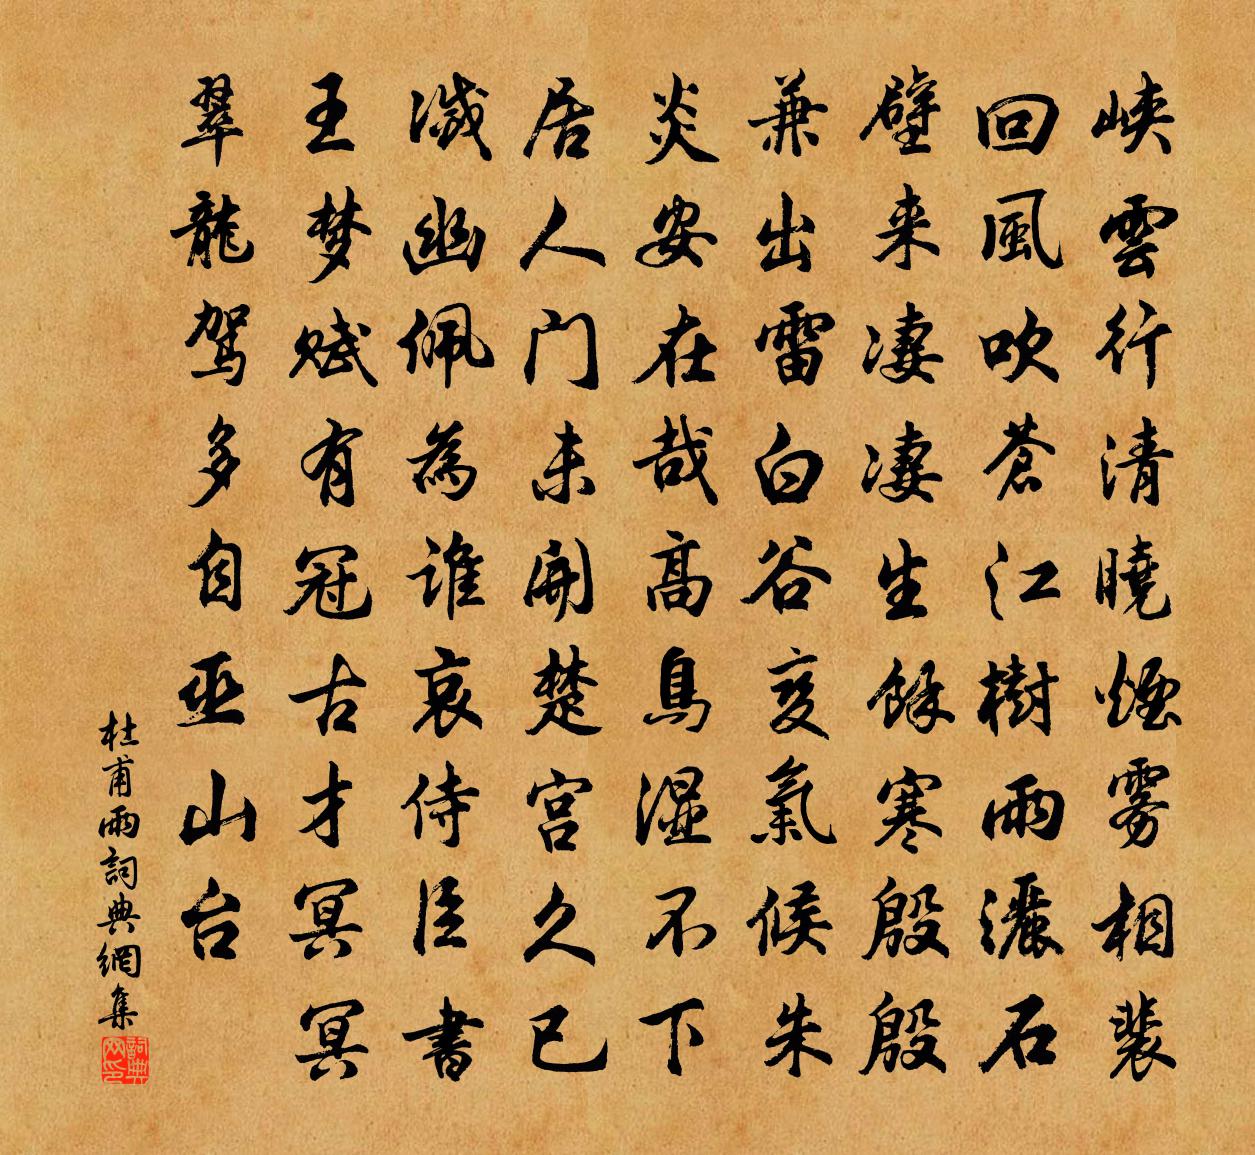 峡雲行清曉煙雾相裴
回風吹蒼江樹雨灑石
壁来凄凄生餘寒殷殷
兼出雷白谷变氣候朱
炎安在哉高鳥湿不下
居人门未開楚宫久已
滅幽佩為谁哀侍臣書
王梦赋有冠古才冥冥
翠龍驾多自巫山台
杜甫雨詞典網集
詞典网印